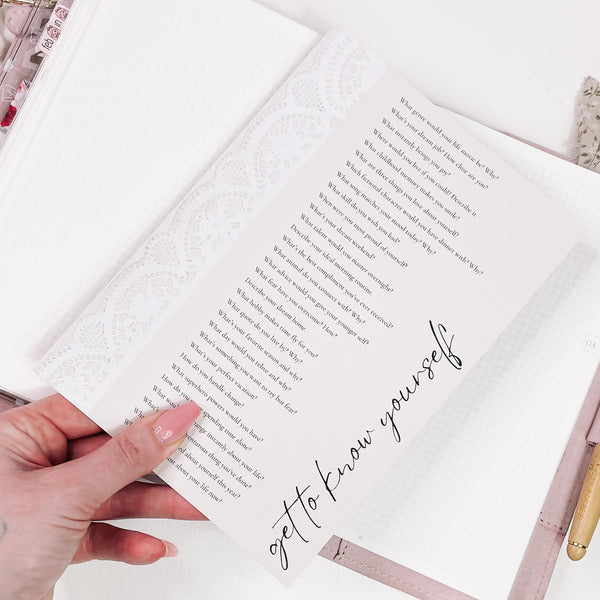 What genre would your life movie be? Why?
What's your dream job? How close are you?
What instantly brings you joy?
Where would you live if you could? Describe it
What childhood memory makes you smile?
What are three things you love about yourself?
Which fictional character would you have dinner with? Why?
What song matches your mood today? Why?
What skill do you wish you had?
When were you most proud of yourself?
What's your dream weekend?
What talent would you master overnight?
Describe your ideal morning routine
What's the best compliment you've ever received?
What animal do you connect with? Why?
What advice would you give your younger self?
What fear have you overcome? How?
Describe your dream home
What hobby makes time fly for you?
What quote do you live by? Why?
What's your favorite season and why?
What day would you relive and why?
What's something you want to try but fear?
What's your perfect vacation?
How do you handle change?
What superhero powers would you have?
How do you spending time alone?
What would change instantly about your life?
venturous thing you've done?
ed about yourself this year?
ost about your life now?
get to know yourself
feb